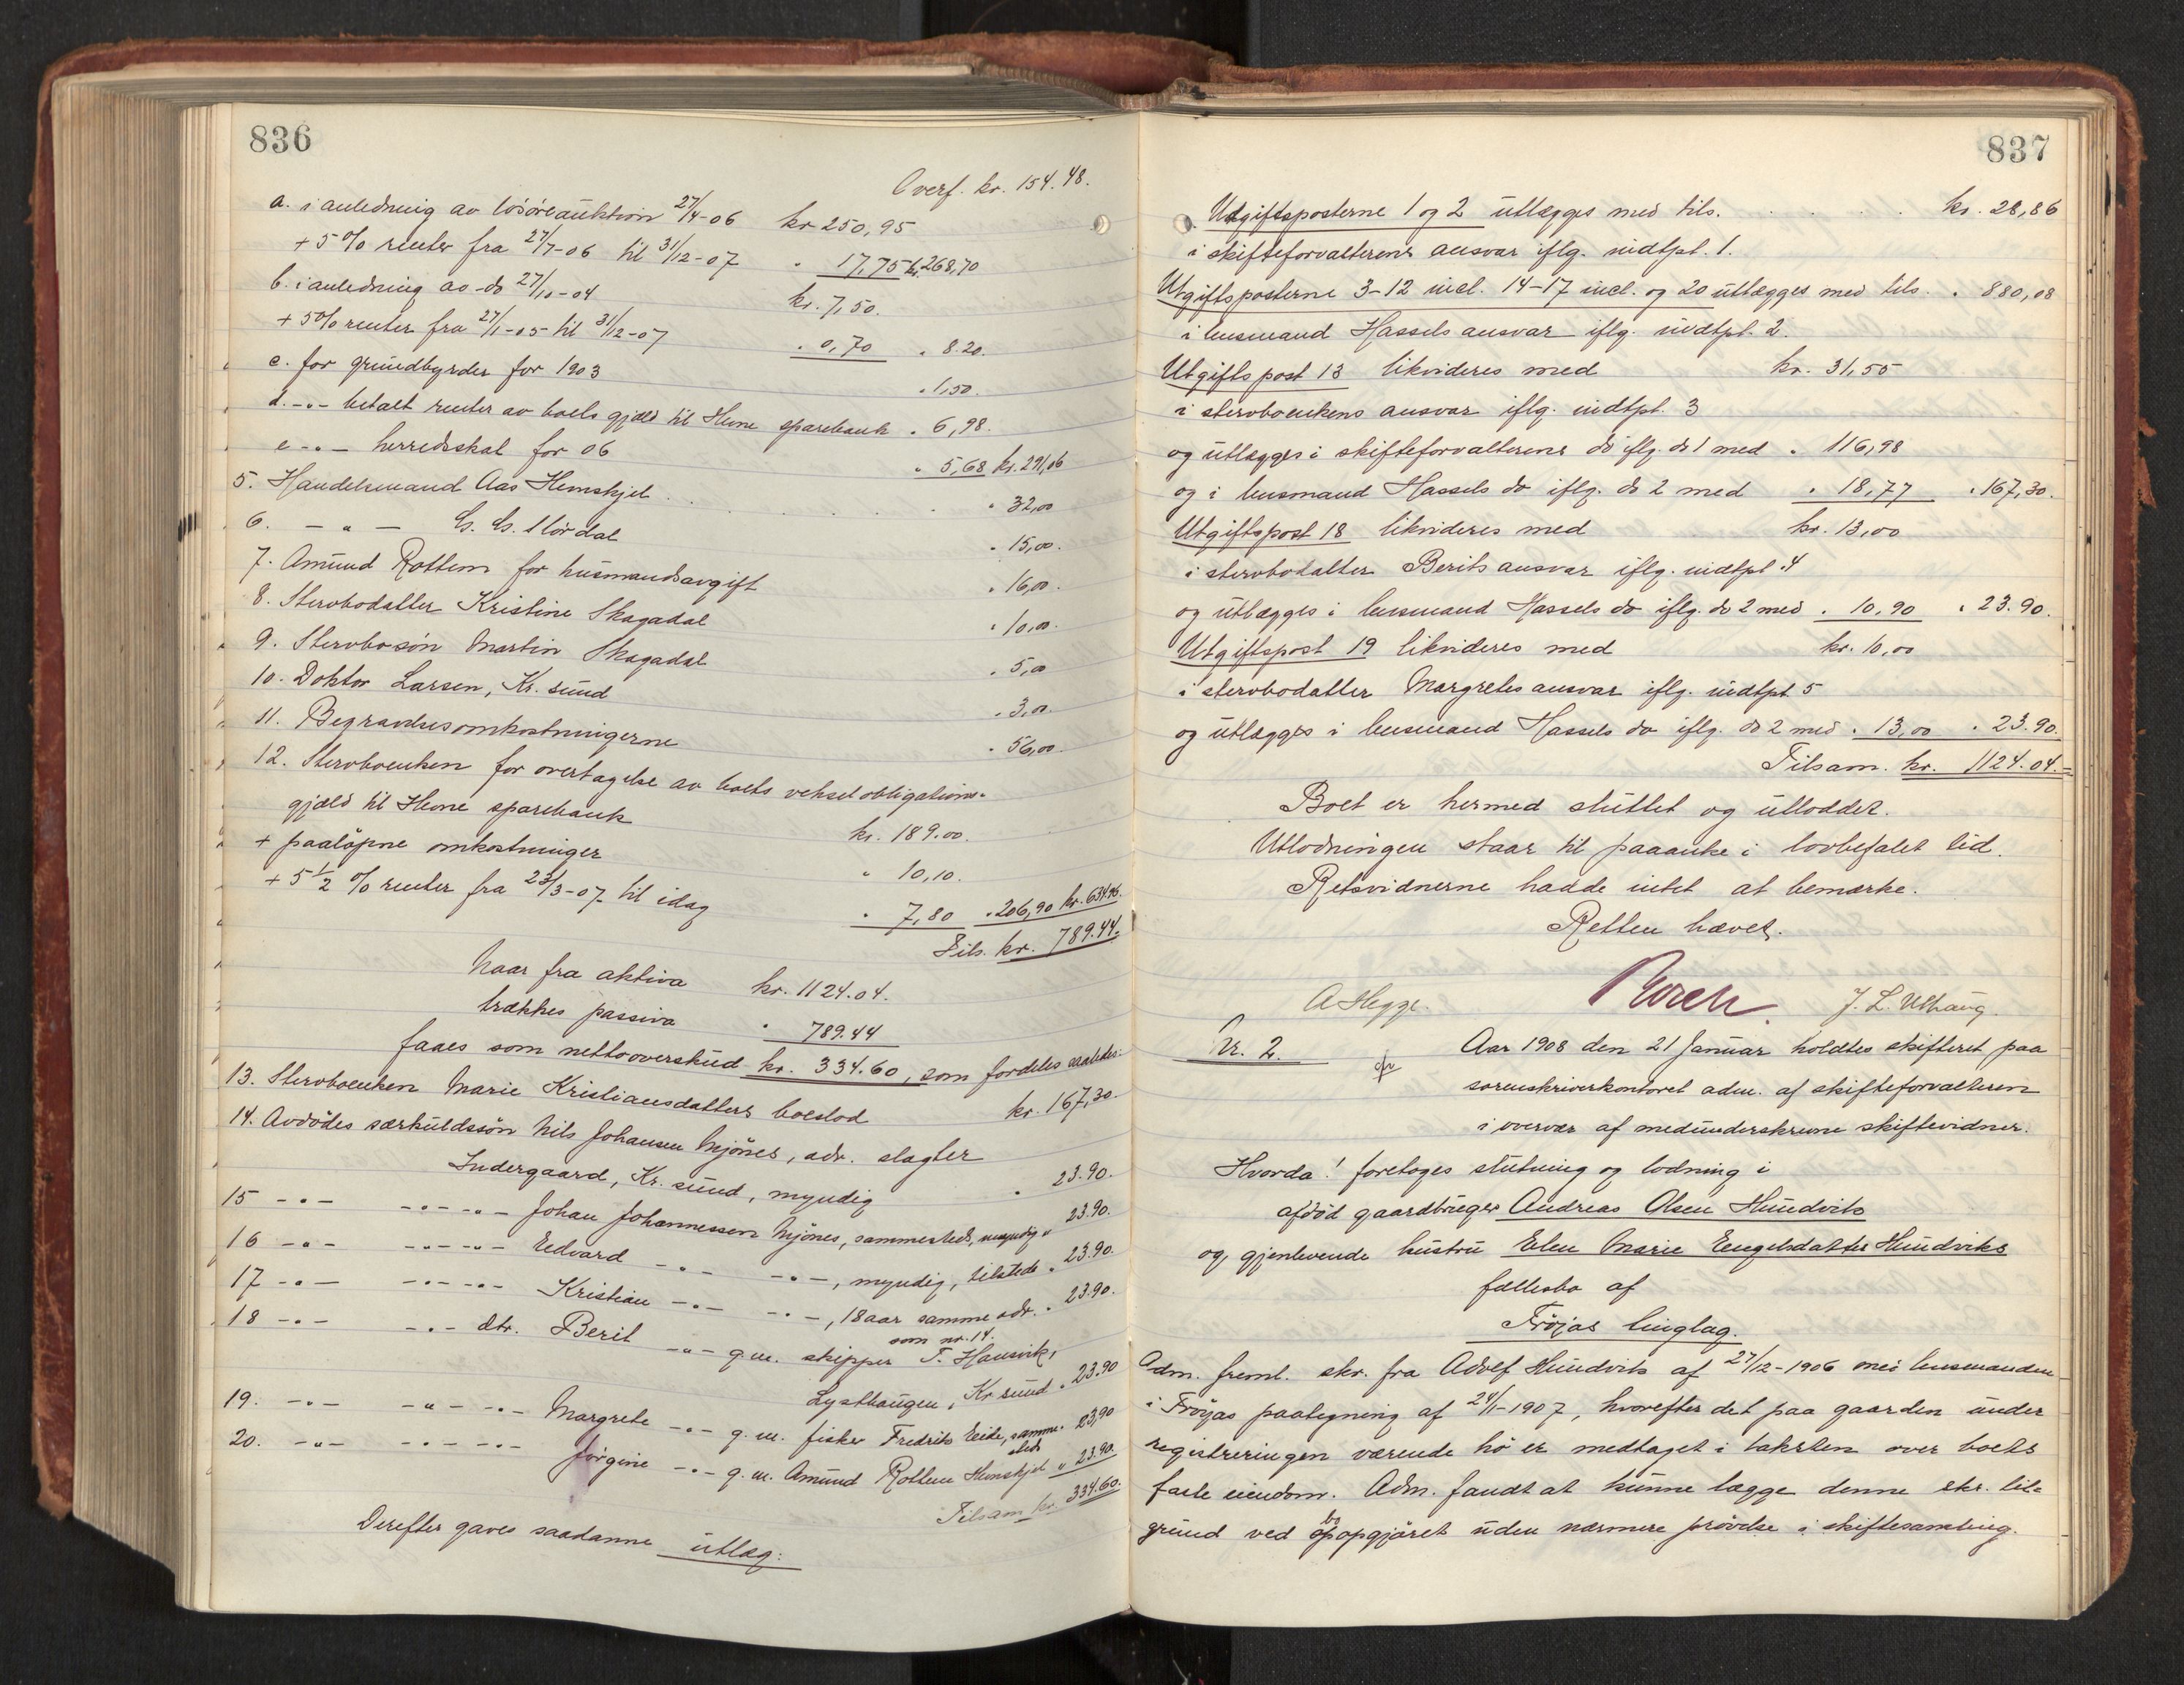 836
Overf. kr. 154.48.
a. i anledning av lösöreauktion 27/4-06 kr 250,95
+ 5 % renter fra 27/7-06 til 31/12-07 " 17,75 kr. 268,70
b. i anledning av do 27/10-04 kr. 7,50.
+ 5% renter fra 27/1-05 til 31/12-07 " 0,70 " 8.20.
c. for grundbyrder for 1903 " 1,50.
d. -"- betalt renter av boets gjæld til Hevne sparebank " 6,98.
e -"- herredsskat for 06 " 5,68 kr. 291,06
5. Handelsmand Aas Hemskjel " 32,00
6. -"- dal " 15,00.
7. Amund Rottem for husmandsavgift " 16,00.
8. Stervbodatter Kristine Skagadal " 10,00.
9. Stervbosön Martin Skagadal " 5,00
10. Doktor Larsen, Kr. sund " 3,00.
11. Begravelsesomkostningerne " 56,00.
12. Stervboenken for overtagelse av boets vekselobligations-
gjæld til Hevne sparebank kr. 189.00.
+ paalöpne omkostninger " 10,10.
+ 5 1/2 % renter fra 23/3-07 til idag " 7,80 " 206,90 kr. 634.96.
Tils. kr. 789.44.
Naar fra aktiva kr. 1124.04.
trækkes passiva " 789.44
faaes som nettooverskud kr. 334.60, som fordeles saaledes:
13. Stervboenken Marie Kristiansdatters boeslod kr. 167,30.
14. Avdödes særkuldssön Nils Johansen Mjönes, adr. slagter
Indergaard, Kr. sund, myndig " 23.90.
15 -"- -"- -"- Johan Johannessen Mjönes, sammesteds, myndig " 23.90.
16 -"- -"- -"- Edvard -"- -"-, myndig, tilstede " 23.90.
17 -"- -"- -"- Kristian -"- -"-, 18 aar samme adr. " 23.90.
som nr. 14.
18 -"- -"- dtr. Berit -"- g. m. skipper T. Hansvik,
Lysthaugen, Kr sund " 23.90
19. -"- -"- -"- Margrete -"- g. m. fisker Fredrik Eide, samme- " 23,90
steds
20. -"- -"- -"- Jörgine -"- g. m. Amund Rottem Hemskjel " 23.90.
Tilsam kr. 334.60.
Derefter gaves saadanne utlæg:
837
Utgiftsposterne 1 og 2 utlægges med tils. kr. 28,86
i skifteforvalterens ansvar iflg. indtpt. 1.
Utgiftsposterne 3-12 incl. 14-17 incl. og 20 utlægges med tils. " 880,08
i lensmand Hassels ansvar iflg. indtpt. 2.
Utgiftspost 13 likvideres med kr. 31,55
i stervboenkens ansvar iflg. indtpt. 3
og utlægges i skifteforvalterens do iflg. do 1 med " 116,98
og i lensmand Hassels do iflg. do 2 med " 18,77 " 167,30.
Utgiftspost 18 likvideres med kr. 13,00
i stervbodatter Berits ansvar iflg. indtpt. 4
og utlægges i lensmand Hassels do iflg. do 2 med " 10,90 " 23.90.
Utgiftspost 19 likvideres med kr. 10,00
i stervbodatter Margretes ansvar iflg. indtpt 5
og utlægges i lensmand Hassels do iflg. do 2 med " 13,00 " 23.90.
Tilsam. kr. 1124.04.=
Boet er hermed sluttet og utloddet.
Utlodningen staar til paaanke i lovbefalet tid.
Retsvidnerne hadde intet at bemærke.
Retten hævet.
A Hegge. J. L. Uthaug.
Nr. 2. Aar 1908 den 21 Januar holdtes skifteret paa
sorenskriverkontoret adm. af skifteforvalteren
i overvær af medunderskrevne skiftevidner.
Hvorda! foretoges slutning og lodning i
afdöd gaardbruger Andreas Olsen Hundvik
og gjenlevende hustru Elen Marie Engelsdatter Hundviks
fællesbo af
Fröjas tinglag.
Adm. freml. skr. fra Adolf Hundvik af 27/12-1906 med lensmanden
i Fröjas paategning af 24/1-1907, hvorefter det paa gaarden under
registreringen værende hö er medtaget i taksten over boets
faste eiendom. Adm. fandt at kunne lægge denne skr. til-
grund ved boopgjöret uden nærmere prövelse i skiftesamling.